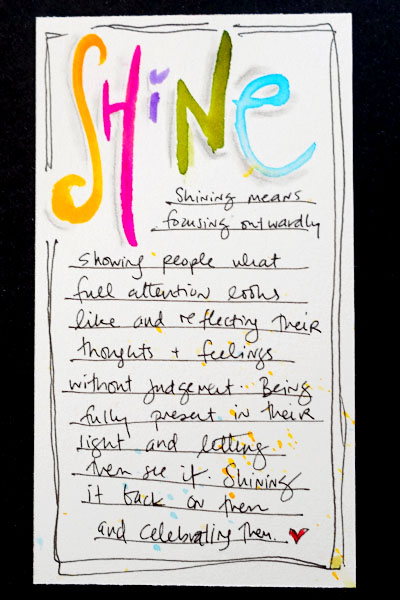 SHiNe
Shining means
focusing outwardly
showing people what
full attention looks
like and reflecting their
thoughts + feelings
without judgement. Being
fully present in their
light and letting
them see it. Shining
it back on them
and celebrating them.